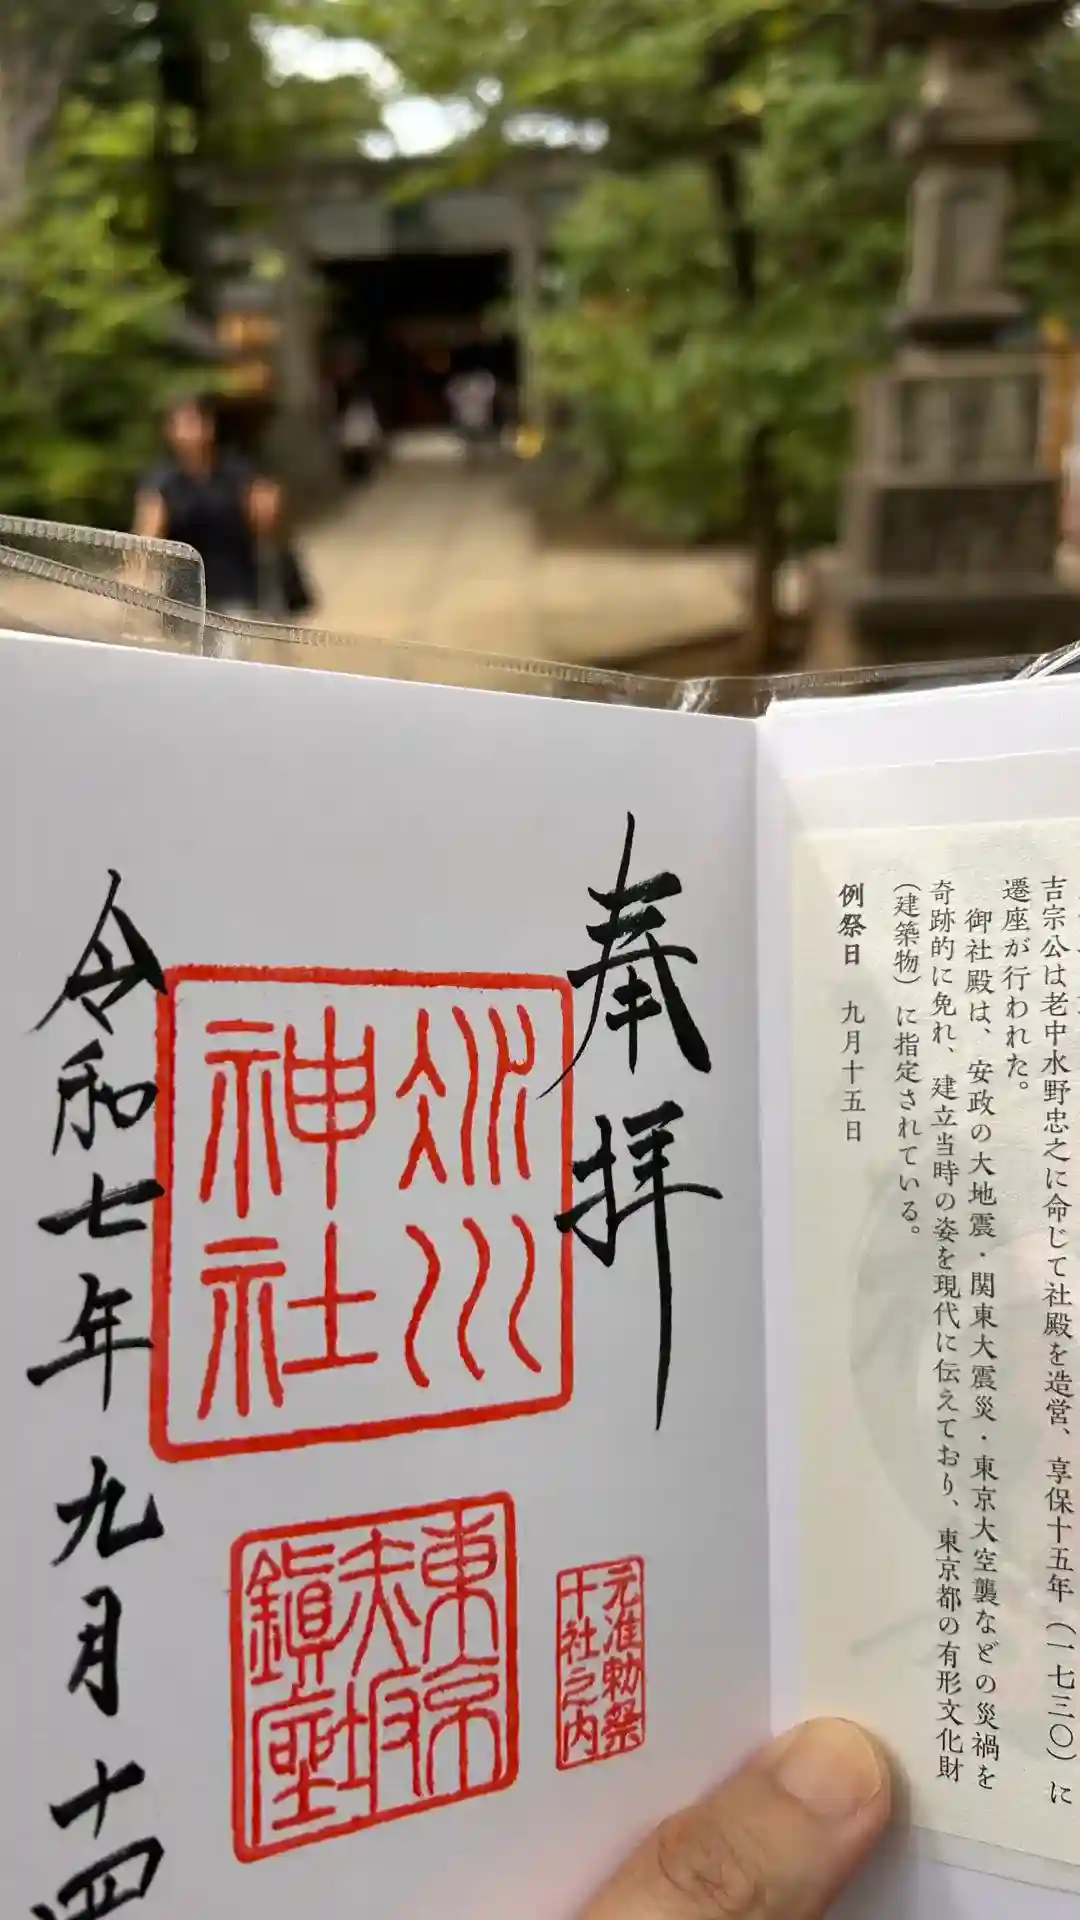 吉宗公は老中水野忠之に命じて社殿を造営、享保十五年（一七三〇）に
遷座が行われた。
御社殿は、安政の大地震・関東大震災・東京大空襲などの災禍を
奇跡的に免れ、建立当時の姿を現代に伝えており、東京都の有形文化財
（建築物）に指定されている。
例祭日 九月十五日
奉拝
氷川
神社
東京
赤坂
鎮座
元准勅祭
十社之内
令和七年九月十四